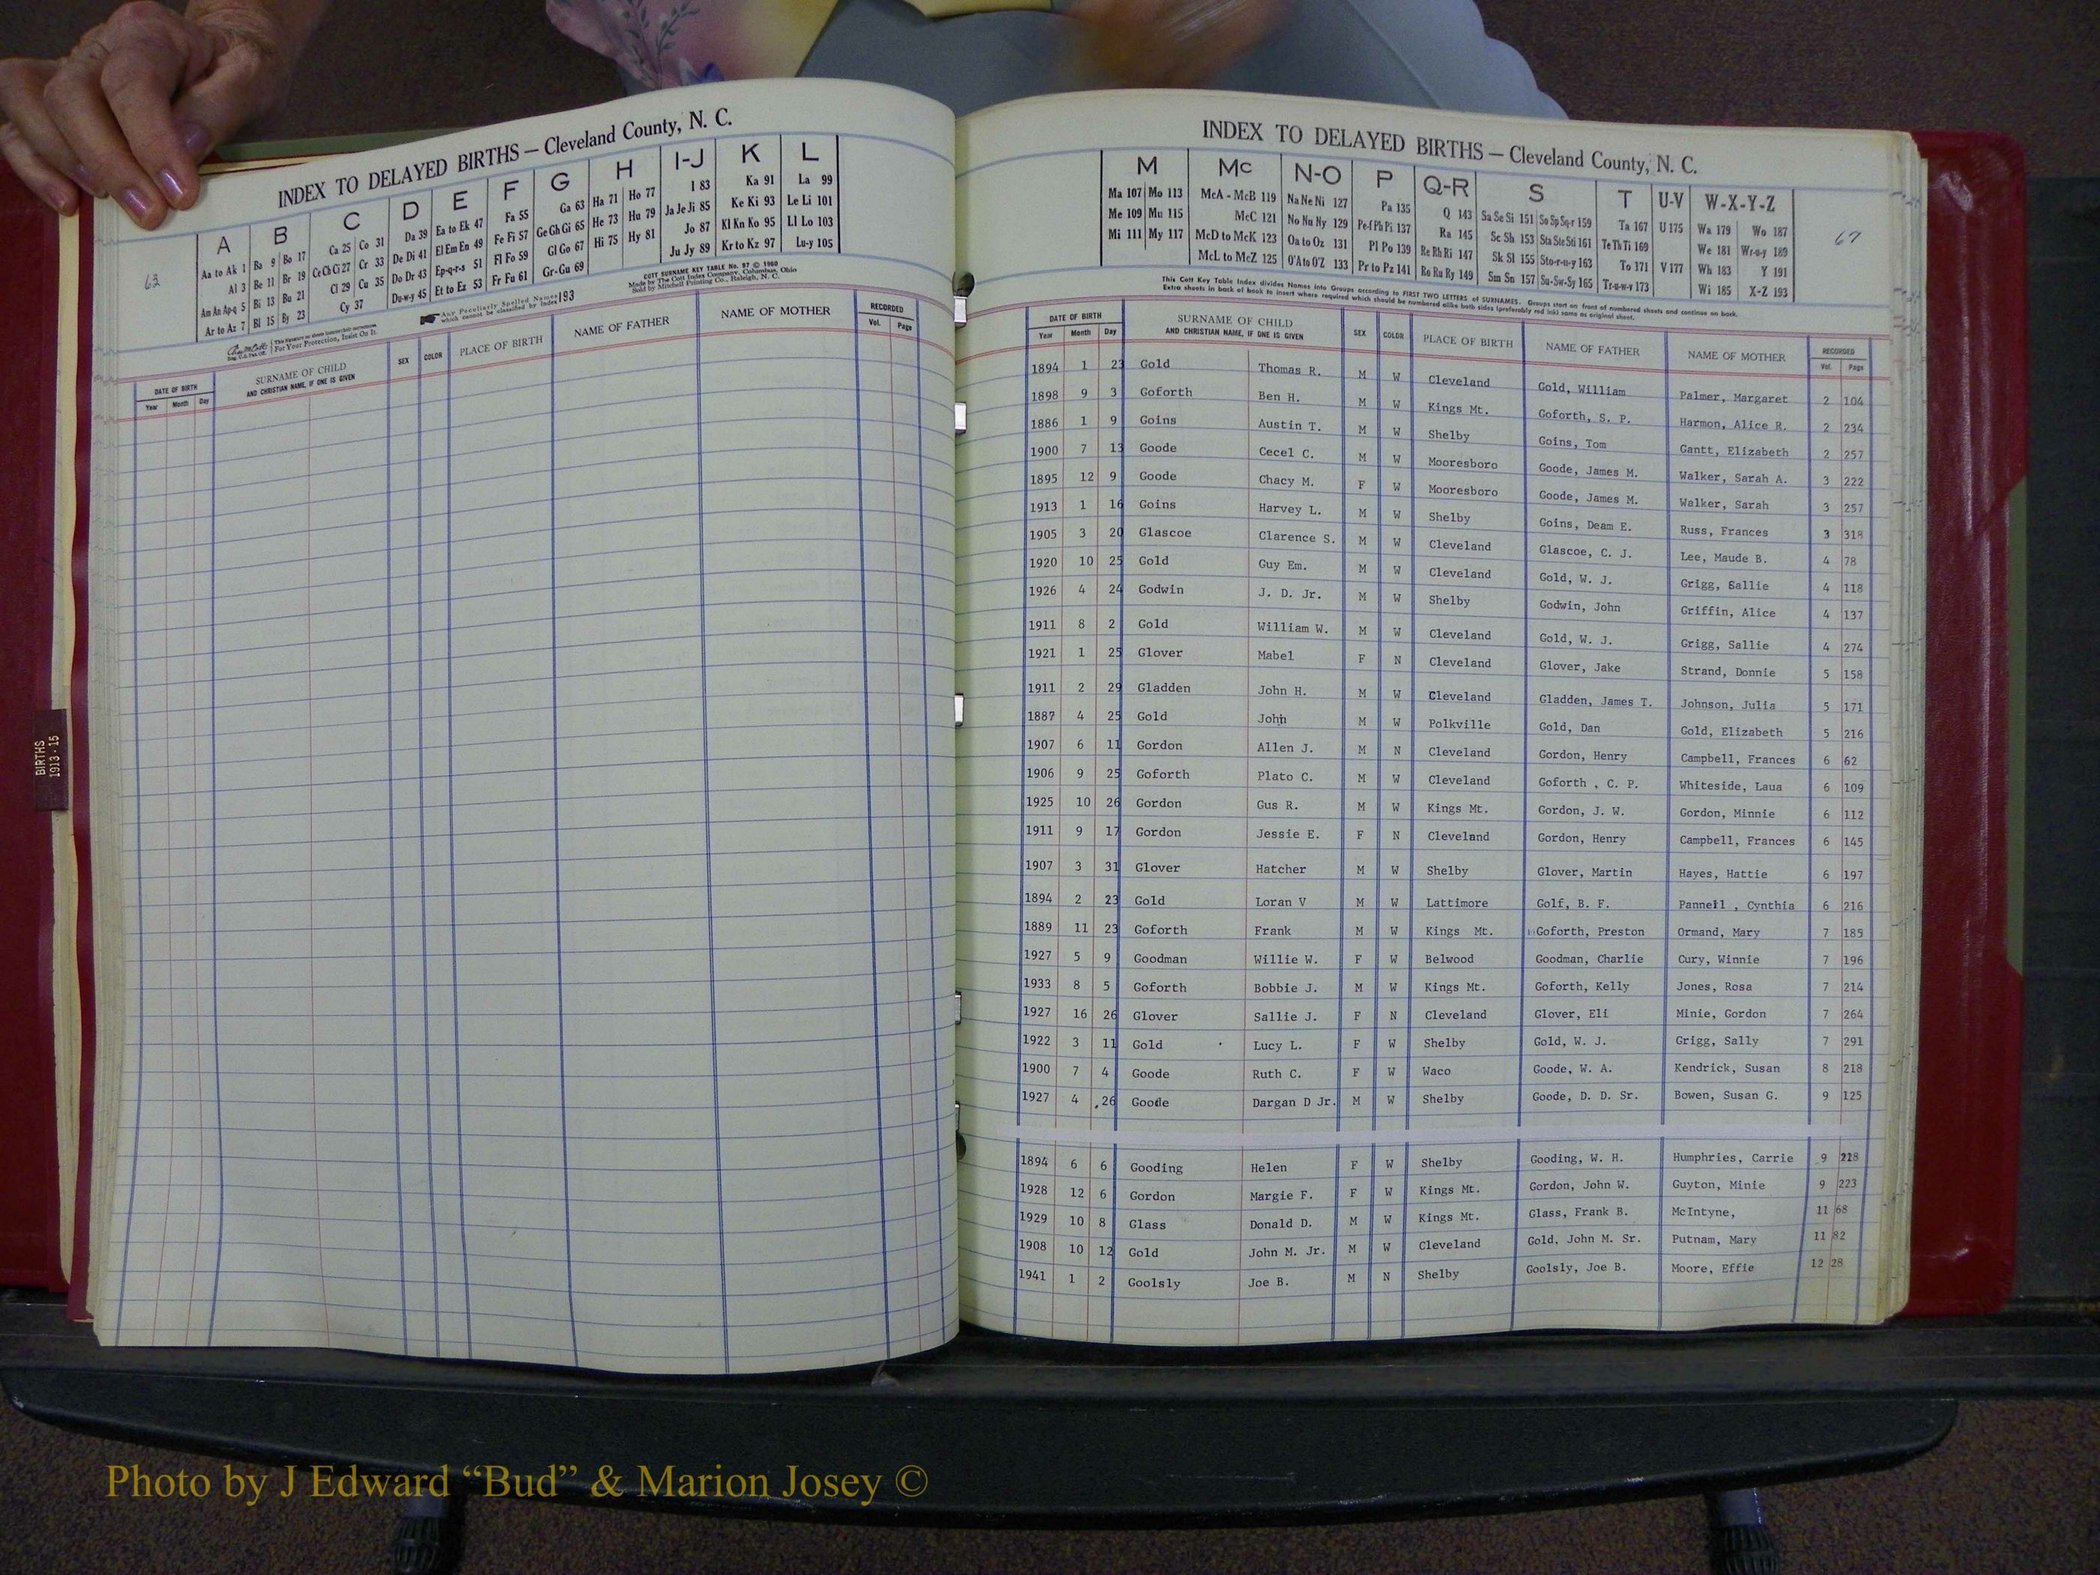 INDEX TO DELAYED BIRTHS — Cleveland County, N. C.
63
A B C D E F G H I-J K L
Aa to Ak 1 Ba 9 Bo 17 Ca 25 Co 31 Da 39 Ea to Ek 47 Fa 55 Ga 63 Ha 71 Ho 77 I 83 Ka 91 La 99
Al 3 Be 11 Br 19 Ce Ch Ci 27 Cr 33 De Di 41 El Em En 49 Fe Fi 57 Ge Gh Gi 65 He 73 Hu 79 Ja Je Ji 85 Ke Ki 93 Le Li 101
Am An Ap-q 5 Bi 13 Bu 21 Cl 29 Cu 35 Do Dr 43 Ep-q-r-s 51 Fl Fo 59 Gl Go 67 Hi 75 Hy 81 Jo 87 Kl Kn Ko 95 Ll Lo 103
Ar to Az 7 Bl 15 By 23 Cy 37 Du-w-y 45 Et to Ez 53 Fr Fu 61 Gr-Gu 69 Ju Jy 89 Kr to Kz 97 Lu-y 105
For Your Protection, Insist On It.
Any Peculiarly Spelled Names which cannot be classified by index 193
COTT SURNAME KEY TABLE No. 97 © 1960
Made by The Cott Index Company, Columbus, Ohio
Sold by Mitchell Printing Co., Raleigh, N. C.
DATE OF BIRTH SURNAME OF CHILD SEX COLOR PLACE OF BIRTH NAME OF FATHER NAME OF MOTHER RECORDED
Year Month Day AND CHRISTIAN NAME, IF ONE IS GIVEN Vol. Page
BIRTHS
1913 - 15
INDEX TO DELAYED BIRTHS — Cleveland County, N. C.
67
M Mc N-O P Q-R S T U-V W-X-Y-Z
Ma 107 Mo 113 McA - McB 119 Na Ne Ni 127 Pa 135 Q 143 Sa Se Si 151 So Sp Sq-r 159 Ta 167 U 175 Wa 179 Wo 187
Me 109 Mu 115 McC 121 No Nu Ny 129 Pe-f Ph Pi 137 Ra 145 Sc Sh 153 Sta Ste Sti 161 Te Th Ti 169 We 181 Wr-u-y 189
Mi 111 My 117 McD to McK 123 Oa to Oz 131 Pl Po 139 Re Rh Ri 147 Sk Sl 155 Sto-r-u-y 163 To 171 V 177 Wh 183 Y 191
McL to McZ 125 O'A to O'Z 133 Pr to Pz 141 Ro Ru Ry 149 Sm Sn 157 Su-Sw-Sy 165 Tr-u-w-y 173 Wi 185 X-Z 193
This Cott Key Table Index divides Names into Groups according to FIRST TWO LETTERS of SURNAMES. Groups start on front of numbered sheets and continue on back.
Extra sheets in back of book to insert where required which should be numbered alike both sides (preferably red ink) same as original sheet.
DATE OF BIRTH SURNAME OF CHILD SEX COLOR PLACE OF BIRTH NAME OF FATHER NAME OF MOTHER RECORDED
Year Month Day AND CHRISTIAN NAME, IF ONE IS GIVEN Vol. Page
1894 1 23 Gold Thomas R. M W Cleveland Gold, William Palmer, Margaret 2 104
1898 9 3 Goforth Ben H. M W Kings Mt. Goforth, S. P. Harmon, Alice R. 2 234
1886 1 9 Goins Austin T. M W Shelby Goins, Tom Gantt, Elizabeth 2 257
1900 7 13 Goode Cecel C. M W Mooresboro Goode, James M. Walker, Sarah A. 3 222
1895 12 9 Goode Chacy M. F W Mooresboro Goode, James M. Walker, Sarah 3 257
1913 1 16 Goins Harvey L. M W Shelby Goins, Deam E. Russ, Frances 3 318
1905 3 20 Glascoe Clarence S. M W Cleveland Glascoe, C. J. Lee, Maude B. 4 78
1920 10 25 Gold Guy Em. M W Cleveland Gold, W. J. Grigg, Sallie 4 118
1926 4 24 Godwin J. D. Jr. M W Shelby Godwin, John Griffin, Alice 4 137
1911 8 2 Gold William W. M W Cleveland Gold, W. J. Grigg, Sallie 4 274
1921 1 25 Glover Mabel F N Cleveland Glover, Jake Strand, Donnie 5 158
1911 2 29 Gladden John H. M W Cleveland Gladden, James T. Johnson, Julia 5 171
1887 4 25 Gold John M W Polkville Gold, Dan Gold, Elizabeth 5 216
1907 6 11 Gordon Allen J. M N Cleveland Gordon, Henry Campbell, Frances 6 62
1906 9 25 Goforth Plato C. M W Cleveland Goforth , C. P. Whiteside, Laua 6 109
1925 10 26 Gordon Gus R. M W Kings Mt. Gordon, J. W. Gordon, Minnie 6 112
1911 9 17 Gordon Jessie E. F N Cleveland Gordon, Henry Campbell, Frances 6 145
1907 3 31 Glover Hatcher M W Shelby Glover, Martin Hayes, Hattie 6 197
1894 2 23 Gold Loran V M W Lattimore Golf, B. F. Pannell , Cynthia 6 216
1889 11 23 Goforth Frank M W Kings Mt. Goforth, Preston Ormand, Mary 7 185
1927 5 9 Goodman Willie W. F W Belwood Goodman, Charlie Cury, Winnie 7 196
1933 8 5 Goforth Bobbie J. M W Kings Mt. Goforth, Kelly Jones, Rosa 7 214
1927 16 26 Glover Sallie J. F N Cleveland Glover, Eli Minie, Gordon 7 264
1922 3 11 Gold Lucy L. F W Shelby Gold, W. J. Grigg, Sally 7 291
1900 7 4 Goode Ruth C. F W Waco Goode, W. A. Kendrick, Susan 8 218
1927 4 26 Goode Dargan D Jr. M W Shelby Goode, D. D. Sr. Bowen, Susan G. 9 125
1894 6 6 Gooding Helen F W Shelby Gooding, W. H. Humphries, Carrie 9 218
1928 12 6 Gordon Margie F. F W Kings Mt. Gordon, John W. Guyton, Minie 9 223
1929 10 8 Glass Donald D. M W Kings Mt. Glass, Frank B. McIntyne, 11 68
1908 10 12 Gold John M. Jr. M W Cleveland Gold, John M. Sr. Putnam, Mary 11 82
1941 1 2 Goolsly Joe B. M N Shelby Goolsly, Joe B. Moore, Effie 12 28
Photo by J Edward “Bud” & Marion Josey ©